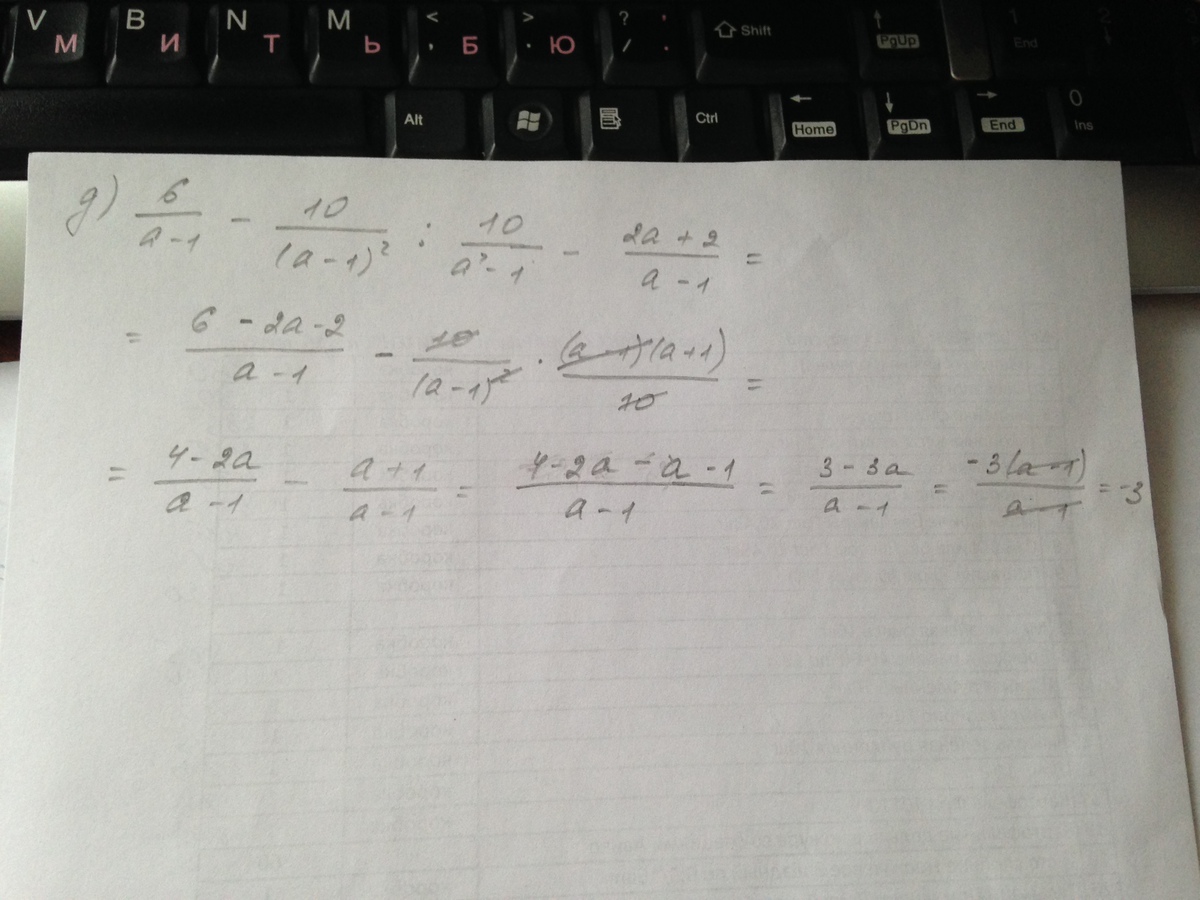 V М B И N Т M Ь < , Б > . Ю ? / , . Shift ↑ PgUp 1 End 2 ↓
Alt Ctrl ← Home ↓ PgDn → End 0 Ins
д) 6/(a-1) - 10/(a-1)² : 10/(a²-1) - (2a+2)/(a-1) =
= (6-2a-2)/(a-1) - 10/(a-1)² · (a-1)(a+1)/10 =
= (4-2a)/(a-1) - (a+1)/(a-1) = (4-2a-a-1)/(a-1) = (3-3a)/(a-1) = -3(a-1)/(a-1) = -3